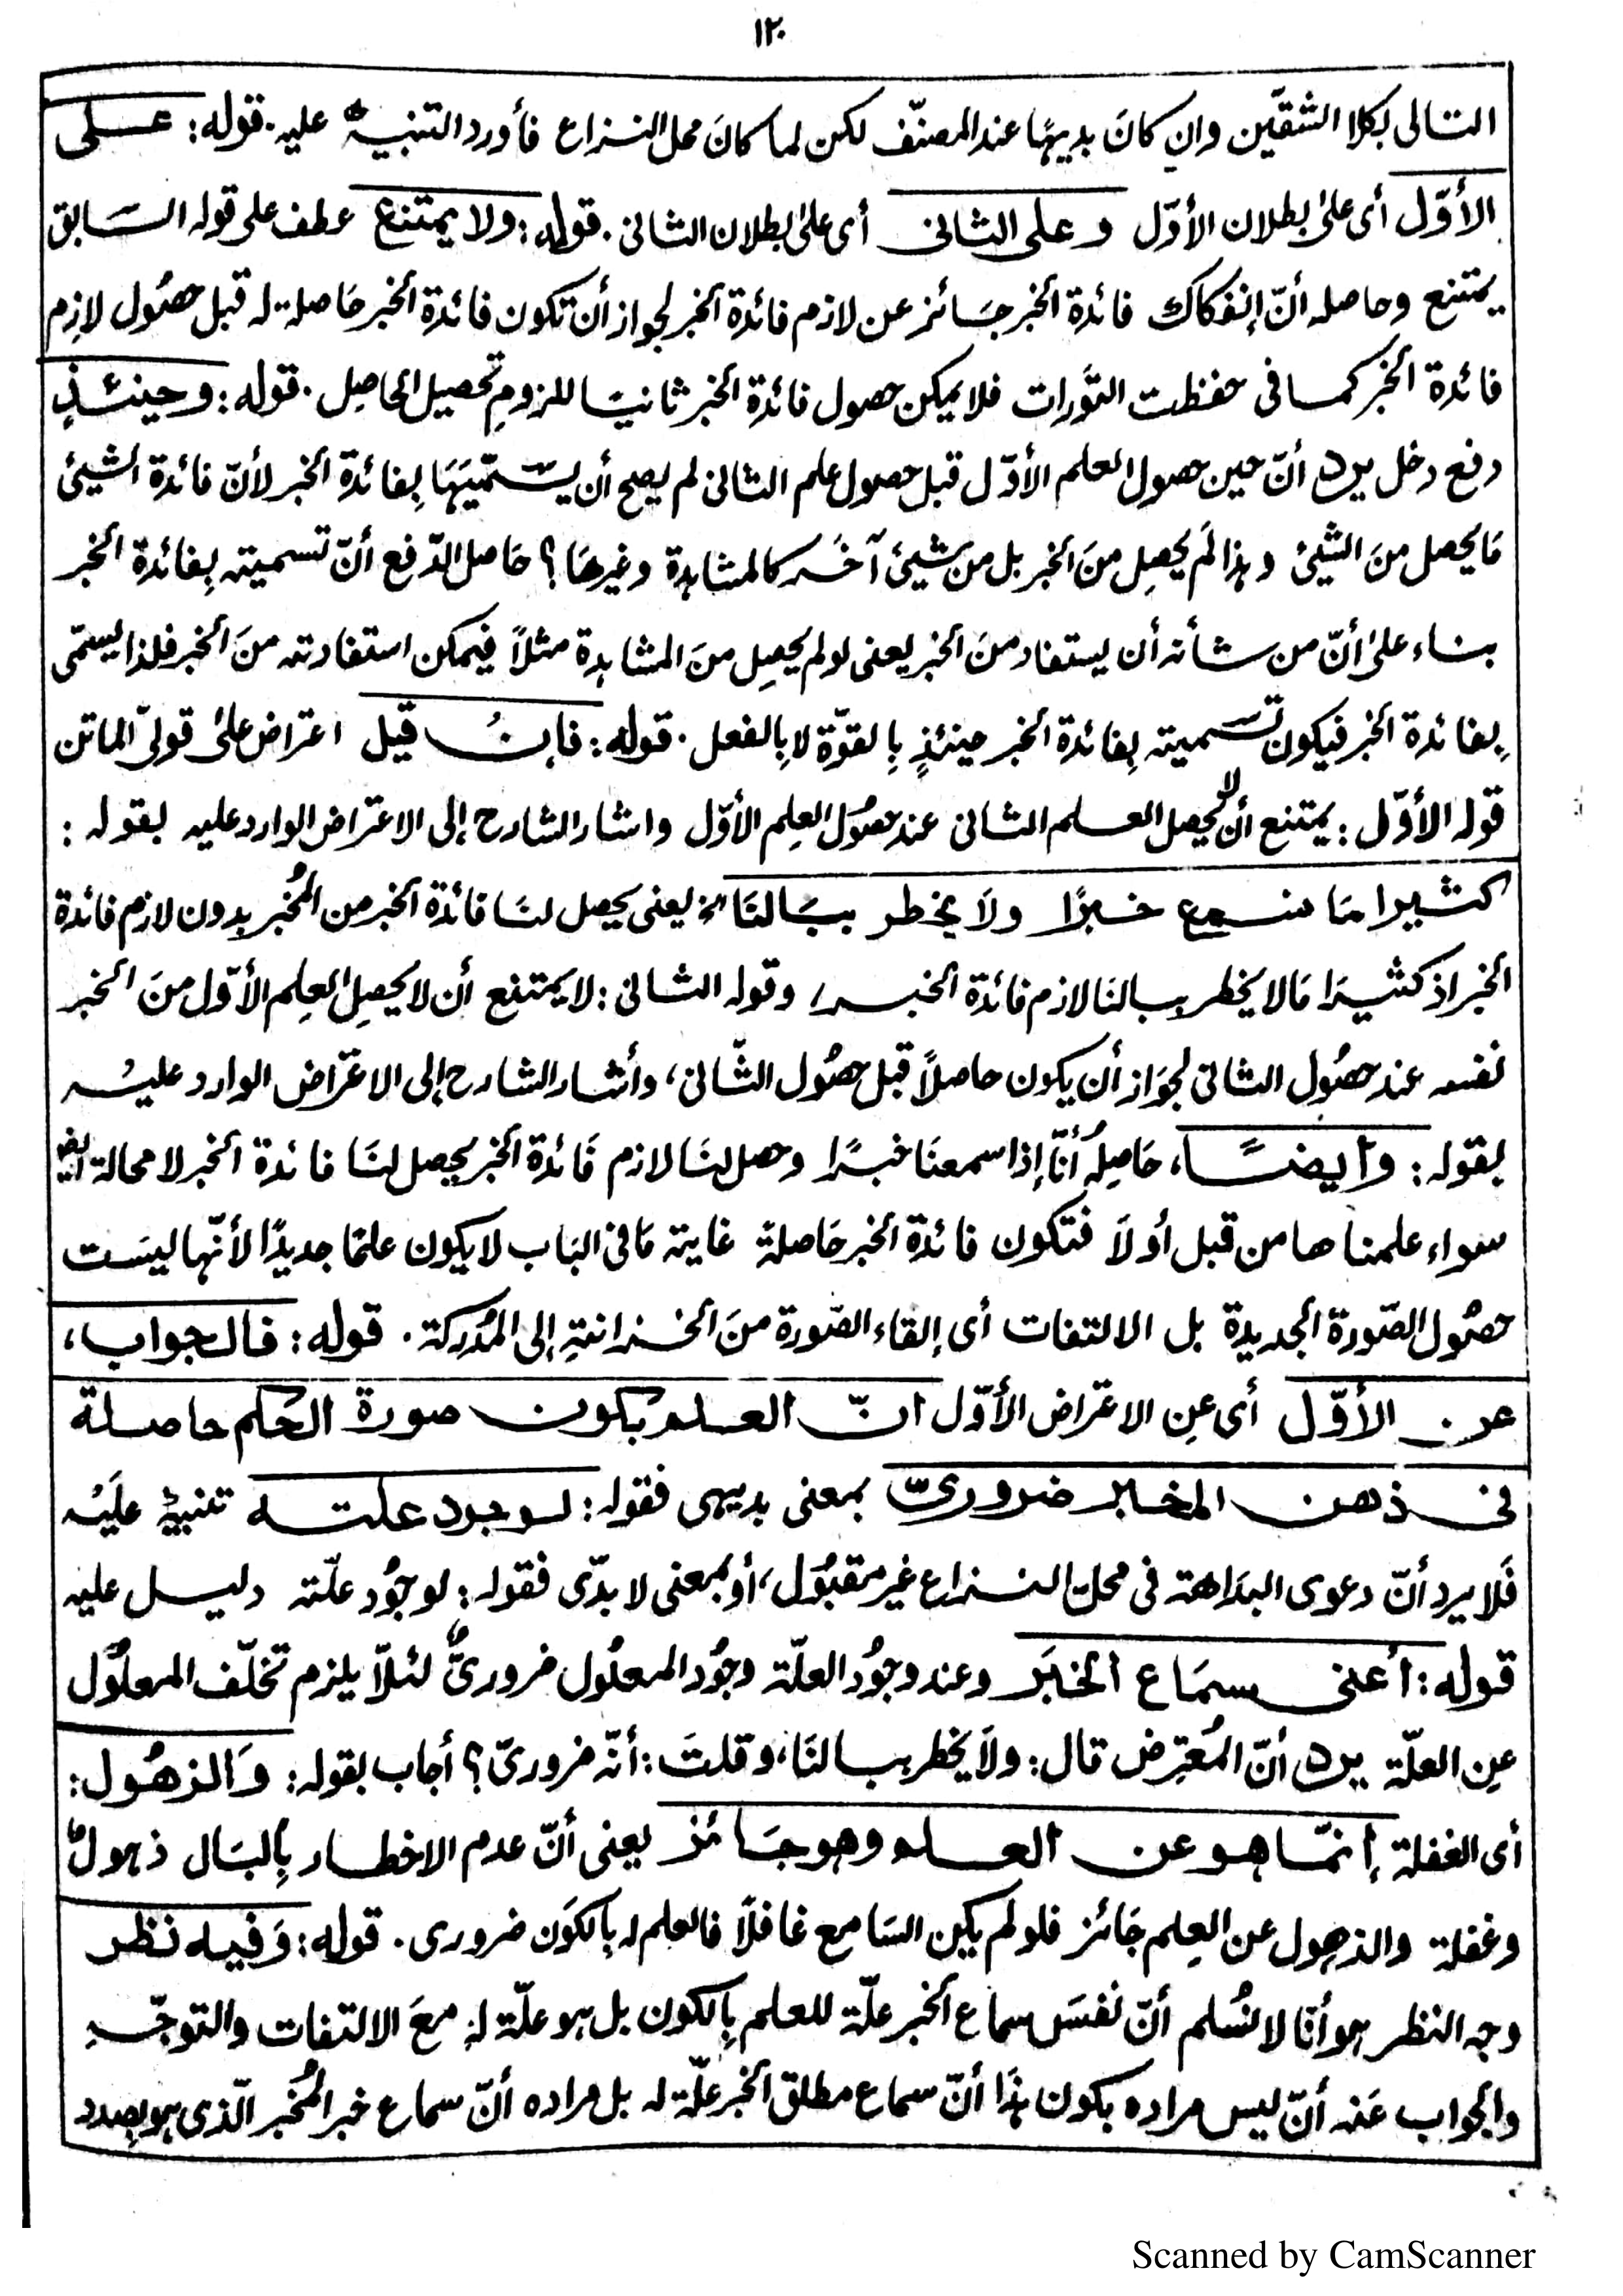 ١٢٠
التالى بكلا الشقّين وان كانَ بديهيًا عند المصنّف لكن لما كانَ محل النزاع فأورد التنبيهُ عليه. قوله: على
الأوّل أى علىٰ بطلان الأوّل وعلى الثانى أى علىٰ بطلان الثانى. قوله: ولا يمتنع عطف على قوله السَابق
يمتنع وحاصله أنّ إنفكاك فائدة الخبر جَائز عن لازم فائدة الخبر لجواز أن تكون فائدة الخبر حَاصلة له قبل حصُول لازم
فائدة الخبر كما فى حفظت التَّورات فلا يمكن حصول فائدة الخبر ثانيًا للزومِ تحصيل الحاصِل. قوله: وحينئذٍ
دفع دخل يرد أنّ حين حصول العلم الأوّل قبل حصول علم الثانى لم يصح أن يسّميَهَا بِفائدة الخبر لأنّ فائدة الشيئ
مَا يحصل منَ الشيئ وهذا لَم يحصِل منَ الخبر بل من شيئ آخَر كالمشاهدة وغيرهَا؟ حَاصل الدّفع أنّ تسميته بِفائدة الخبر
بناء علىٰ أنّ من شأنه أن يستفاد منَ الخبر يعنى لو لم يحصِل منَ المشاهدة مثلاً فيمكن استفادته منَ الخبر فلذا يسمّى
بِفائدة الخبر فيكون تسميته بِفائدة الخبر حينئذٍ بِالقوّة لا بِالفعل. قوله: فإن قيل اعتراض علىٰ قولىّ الماتن
قوله الأوّل: يمتنع أن لا يحصل العلم الثانى عند حصُول العِلم الأوّل واشار الشارح إلى الاعتراض الوارد عليه بقوله:
كثيرا مَا نسمع خبرًا ولَا يخطر ببَالنَا الخ يعنى يحصل لنَا فائدة الخبر من المُخبر بدون لازم فائدة
الخبر اذ كثيرَا مَا لا يخطر ببالنَا لازم فائدة الخبر، وقوله الثانى: لا يمتنع أن لا يحصِل العِلم الأوّل منَ الخبر
نفسه عند حصُول الثانى لجوَاز أن يكون حاصلاً قبل حصُول الثّانى، وأشار الشارح إلى الاعتراض الوارد عليْه
بقوله: وأيضًا، حَاصِلهُ أنّا إذا سمعنَا خبرًا وحصل لنَا لازم فَائدة الخبر يحصل لنَا فائدة الخبر لا محالة
سواء علمناها من قبل أو لَا فتكون فائدة الخبر حَاصلة غاية مَا فى البَاب لا يكون علمًا جديدًا لأنّها ليسَت
حصُول الصّورة الجديدة بل الالتفات أى إلقاء الصّورة منَ الخزانةِ إلى المُدرِكة. قوله: فالجواب،
عن الأوّل أى عِن الاعتراض الأوّل انّ العلم بكون صورة الحكم حاصلة
فى ذهن المخبر ضرورىّ بمعنى بديهى فقوله: لوجود علته تنبيهٌ علَيْه
فَلا يرد أنّ دعوى البدَاهة فى محلّ النزاع غير مقبُول، أو بمعنى لا بدّى فقوله: لوجوُد علّته دليل عليه
قوله: أعنى سمَاع الخبَر وعند وجوُد العلّة وجوُد المعلُول ضرورىٌّ لئلاّ يلزم تخلّف المعلُول
عِن العلّة يرد أنّ المُعترِض قال: ولَا يخطر ببالنَا، وقلتَ: أنّه ضرورىّ؟ أجاب بقوله: وَالذهُول:
أى الغفلة إنمّا هو عن العلم وهو جَائز يعنى أنّ عدم الاخطار بِالبَال ذهولٌ
وغفلة والذهول عن العِلم جَائز فلو لم يكن السَامع غافلًا فالعلم له بالكوَن ضرورى. قوله: وَفيه نظر
وجه النظر هو أنّا لا نُسلم أنّ نفسَ سماع الخبر علّة للعلم بِالكون بل هو علّة له معَ الالتفات والتوجّه
والجواب عَنه أنّ ليس مراده بكون هذَا أنّ سماع مطلق الخبر علّة له بل مراده أنّ سماع خبر المُخبر الّذى هو بصدد
Scanned by CamScanner